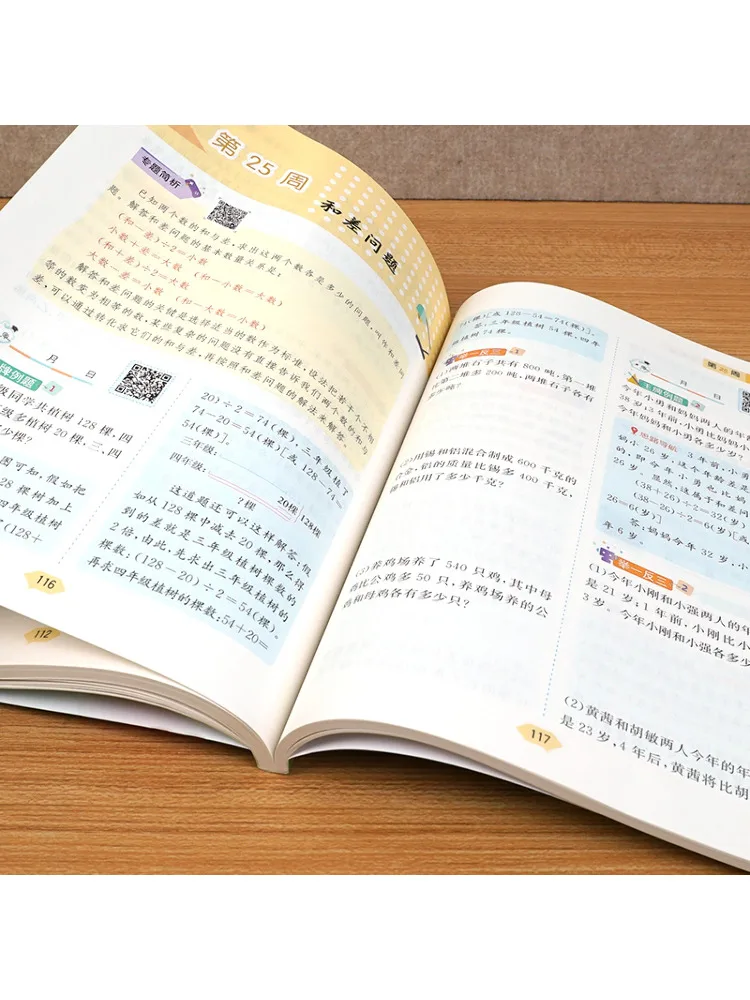 第 25 周
和差问题
专题简析
已知两个数的和与差,求出这两个数各是多少的问题,叫
题。解答和差问题的基本数量关系是:
(和-差)÷2=小数
小数+差=大数 (和-小数=大数)
(和+差)÷2=大数
大数-差=小数 (和-大数=小数)
解答和差问题的关键是选择适当的数作为标准,设法把若干个不相
等的数变为相等的数,某些复杂的问题没有直接告诉我们两个数的和与
差,可以通过转化求它们的和与差,再按照和差问题的解法来解答。
月 日
牌例题 1
级同学共植树 128 棵,四
级多植树 20 棵,三、四
少棵?
图可知,假如把
28 棵树加上
四年级植树
(128+
20)÷2=74(棵),三年级植了
74-20=54(棵)[或 128-74=
54(棵)]。
三年级:
四年级:
20棵
128棵
?棵
这道题还可以这样解答。假
如从 128 棵中减去 20 棵,那么得
到的差就是三年级植树棵数的
2 倍,由此,先求出三年级植树的
棵数:(128-20)÷2=54(棵),
再求四年级植树的棵数:54+20=
116
112
或 128-54=74(棵)]。
答:三年级植树 54 棵,四年
级植树 74 棵。
举一反三 1
(1)两堆石子共有 800 吨,第一堆
比第二堆多 200 吨,两堆石子各有
多少吨?
(2)用锡和铝混合制成 600 千克的
合金,铝的质量比锡多 400 千克,
锡和铝用了多少千克?
(3)养鸡场养了 540 只鸡,其中母
鸡比公鸡多 50 只,养鸡场养的公
鸡和母鸡各有多少只?
117
第 25 周
月 日
王牌例题 2
今年小勇和妈妈两人的年
38 岁,3 年前,小勇比妈妈小
今年妈妈和小勇各多少岁?
思路导航
3 年前,小
妈小 26 岁,这个年龄差是
的,即今年小勇也比妈妈
26 岁。显然,这属于和差问
(38+26)÷2=32(岁)
(38-26)÷2=6(岁)[或
26=6(岁)]
答:妈妈今年 32 岁,小
年 6 岁。
举一反三 2
(1)今年小刚和小强两人的年
是 21 岁;1 年前,小刚比小
3 岁。今年小刚和小强各多少
(2)黄茜和胡敏两人今年的年
是 23 岁,4 年后,黄茜将比胡